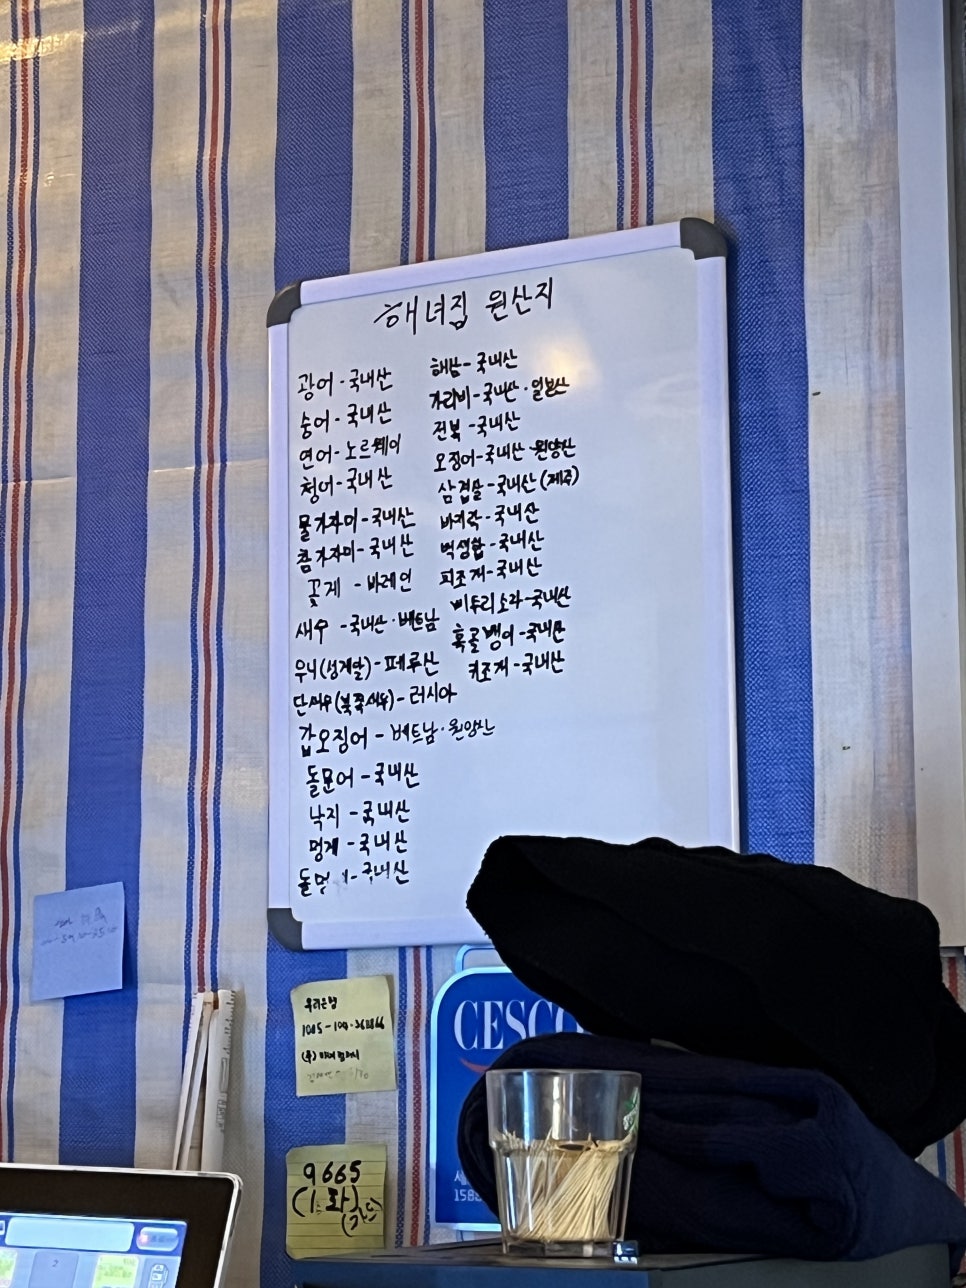 해녀집 원산지
광어 - 국내산
숭어 - 국내산
연어 - 노르웨이
청어 - 국내산
물가자미 - 국내산
참가자미 - 국내산
꽃게 - 바레인
새우 - 국내산 · 베트남
우니(성게알) - 페루산
단새우(북쪽새우) - 러시아
갑오징어 - 베트남 · 원양산
돌문어 - 국내산
낙지 - 국내산
멍게 - 국내산
돌멍 - 국내산
해삼 - 국내산
가리비 - 국내산 · 일본산
전복 - 국내산
오징어 - 국내산 · 원양산
삼겹살 - 국내산 (제주)
바지락 - 국내산
백생합 - 국내산
피조개 - 국내산
비투리소라 - 국내산
흑골뱅이 - 국내산
키조개 - 국내산
우리은행
1005 - 104 -
(주)
CESCO
9665
(1, 좌)